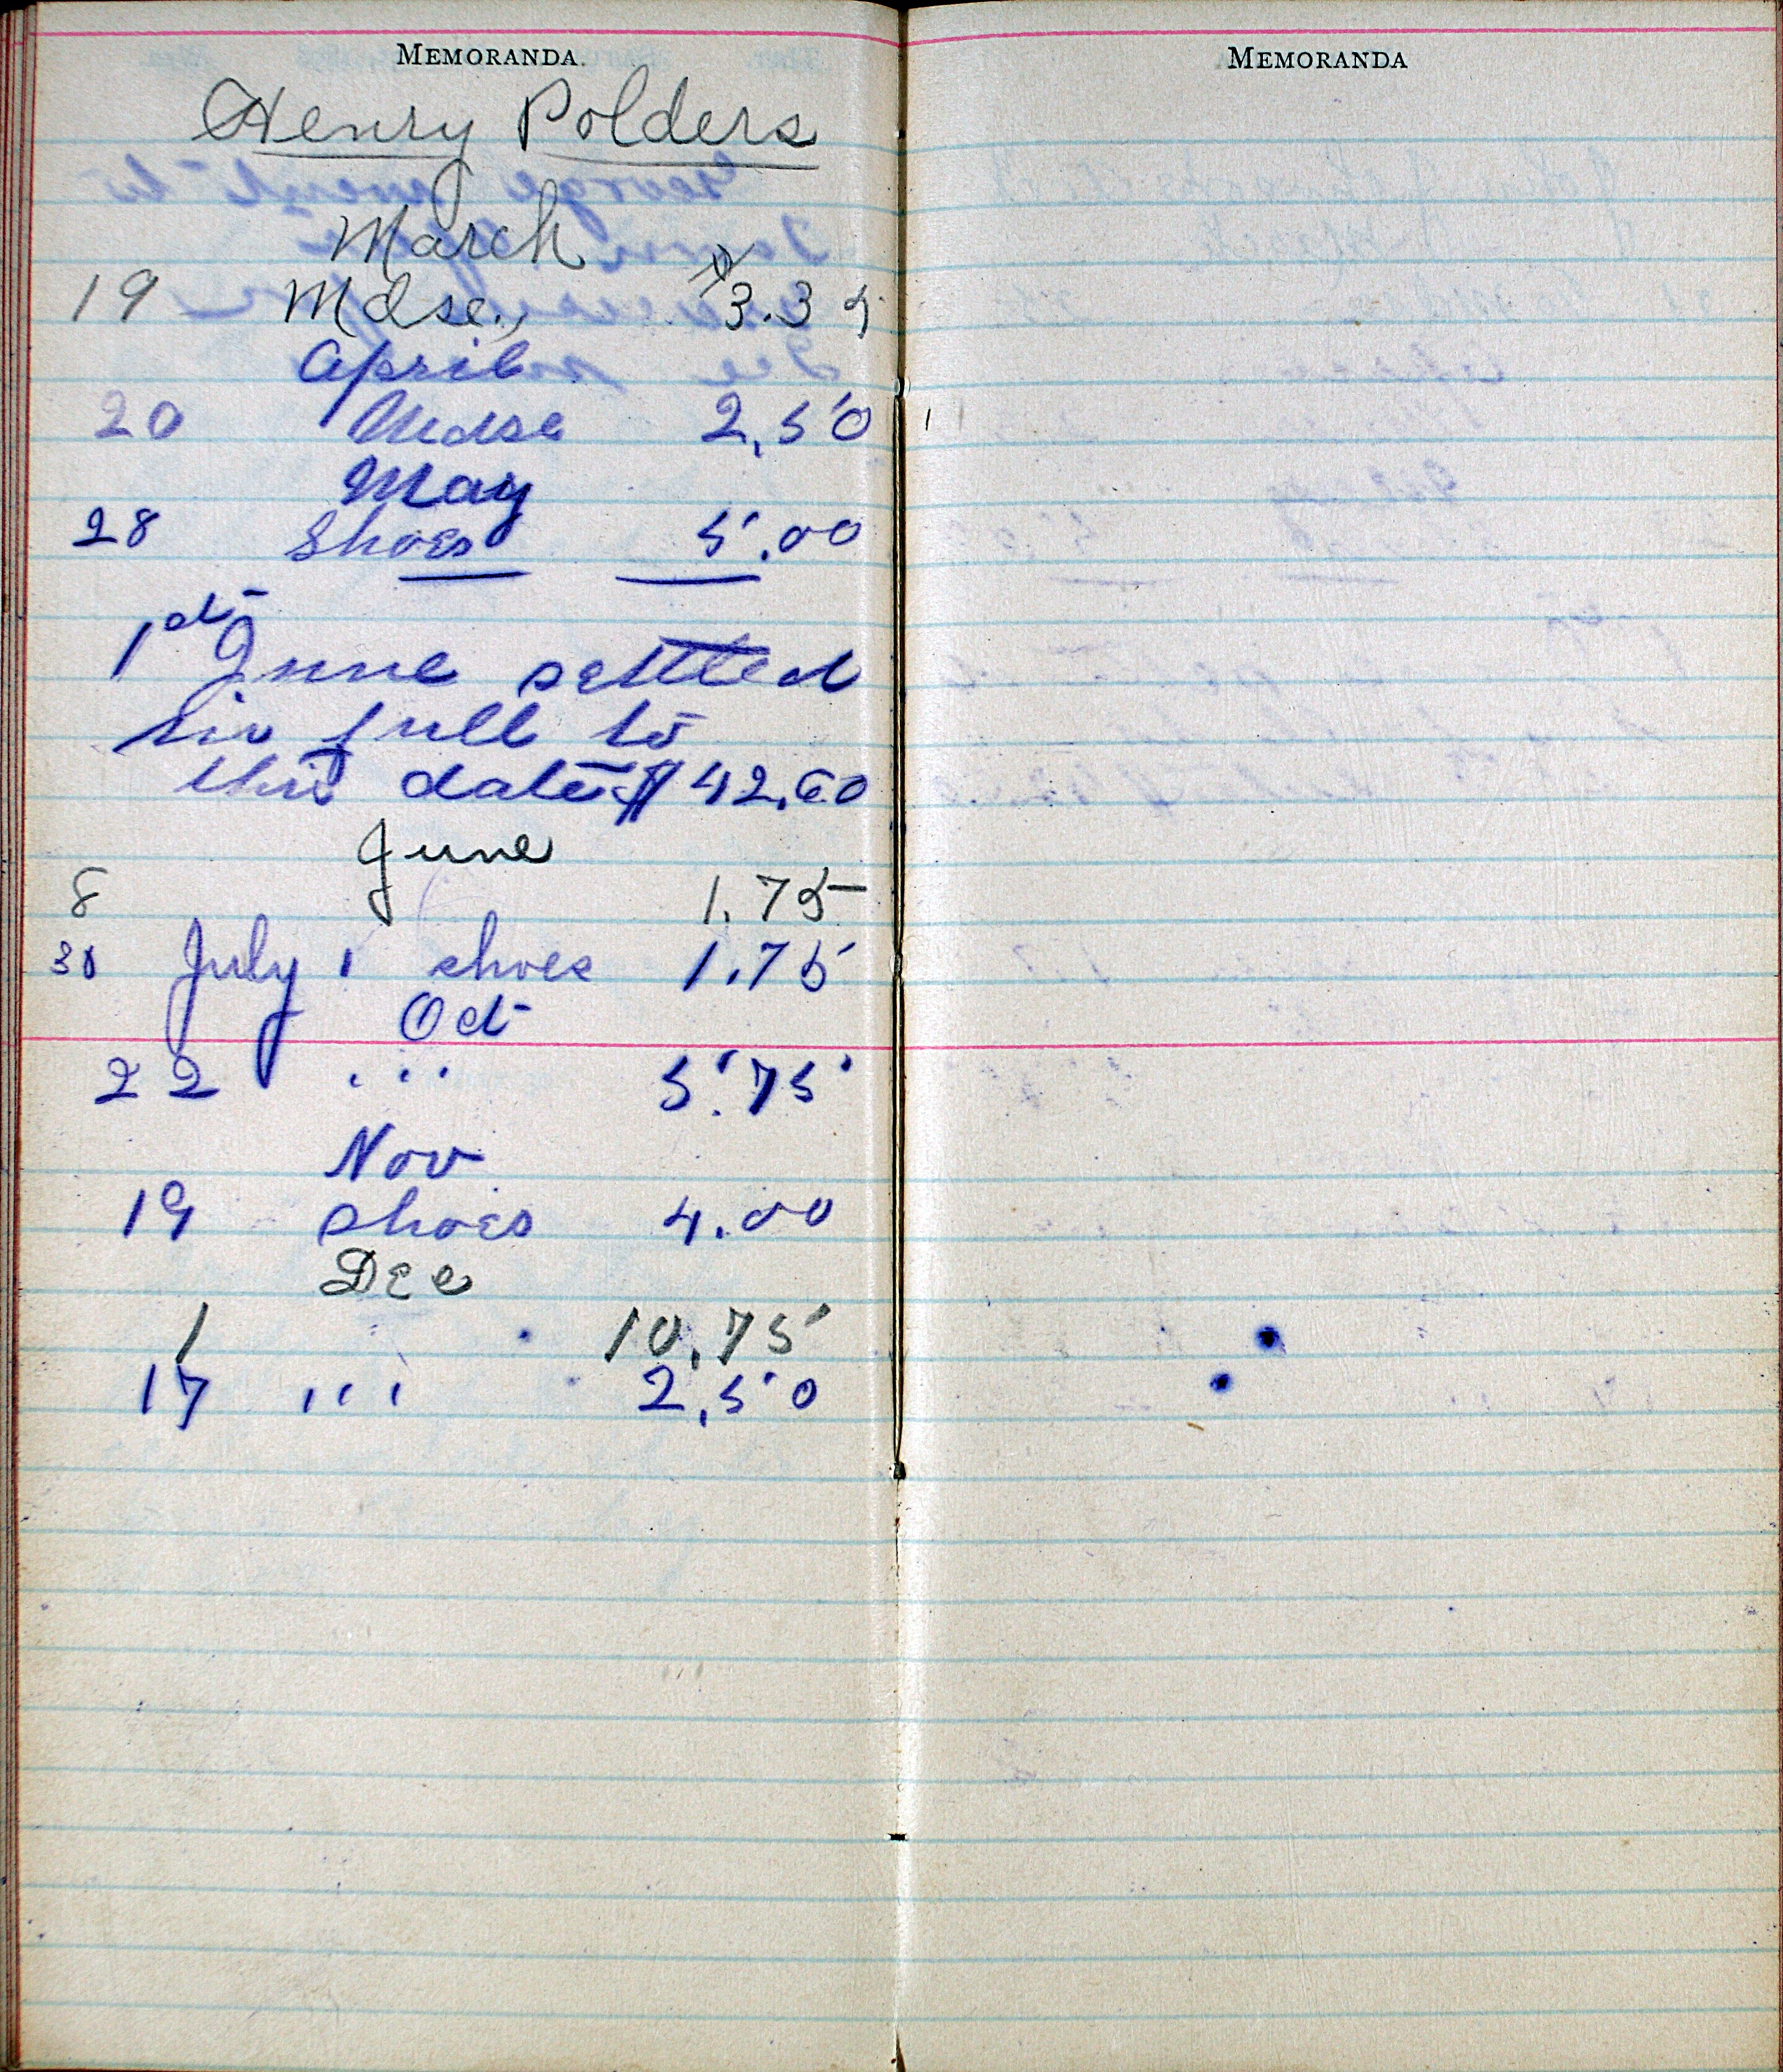 MEMORANDA
Henry Polders
March
19 Mdse., $3.35
April
20 Mdse 2.50
May
28 Shoes 5.00
1st June settled
in full to
this date $42.60
June
8 1.75
30 July 1 shoes 1.75
Oct
22 ... 5.75
Nov
19 shoes 4.00
Dec
1 10.75
17 ,,, 2.50
MEMORANDA